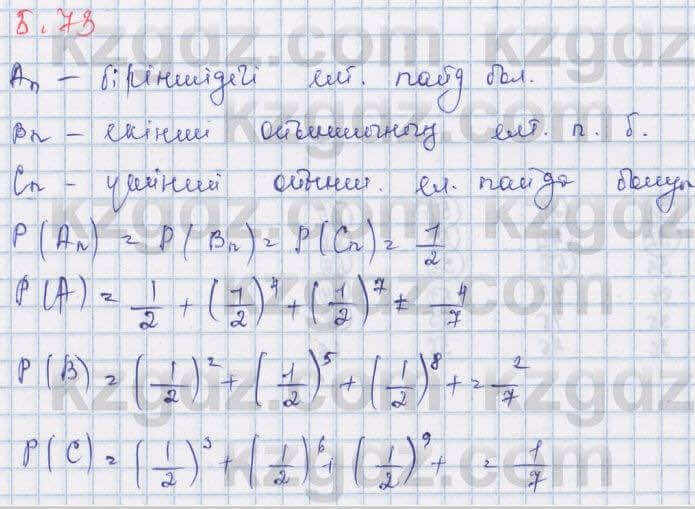 5.73
Aₙ – біріншідегі елт. пайд бол.
Bₙ – екінші ойыншының елт. п. б.
Cₙ – үшінші ойнш. ел. пайда болуы
P(Aₙ) = P(Bₙ) = P(Cₙ) = 1/2
P(A) = 1/2 + (1/2)⁴ + (1/2)⁷ + = 4/7
P(B) = (1/2)² + (1/2)⁵ + (1/2)⁸ + = 2/7
P(C) = (1/2)³ + (1/2)⁶ + (1/2)⁹ + = 1/7